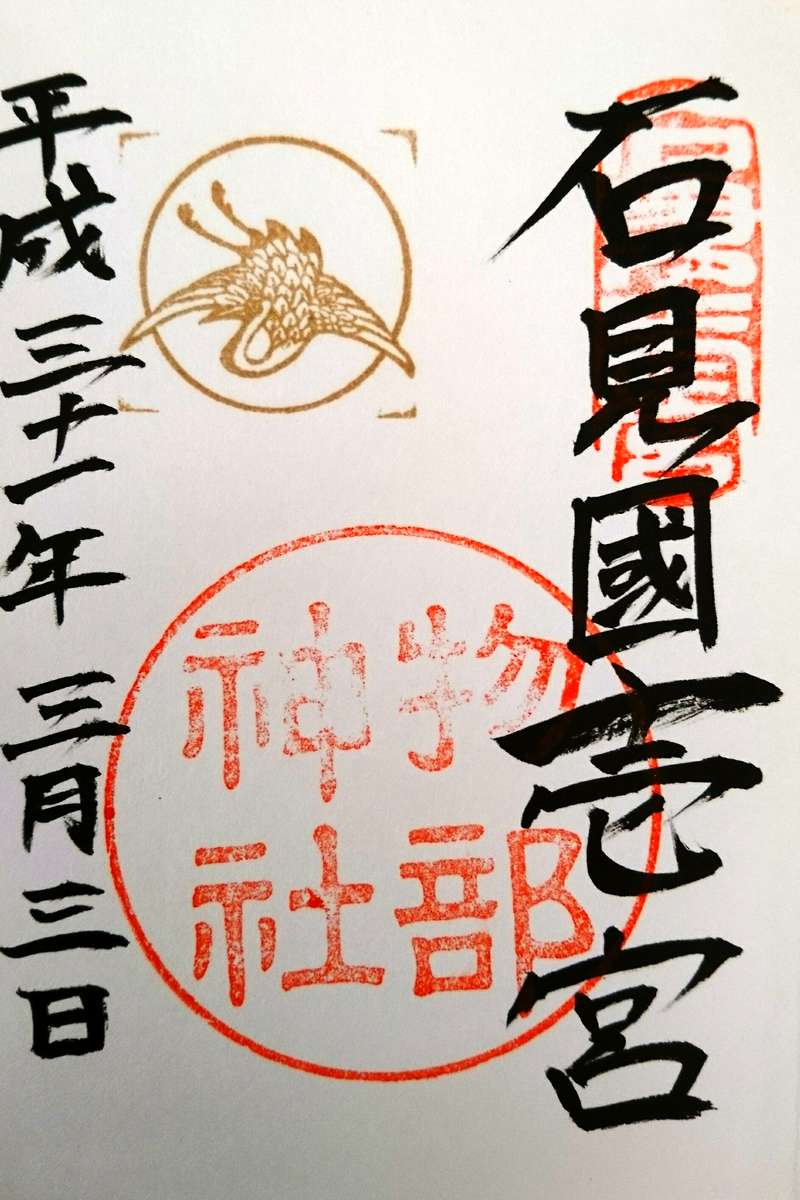 石見國壱宮
物部
神社
平成三十一年三月三日